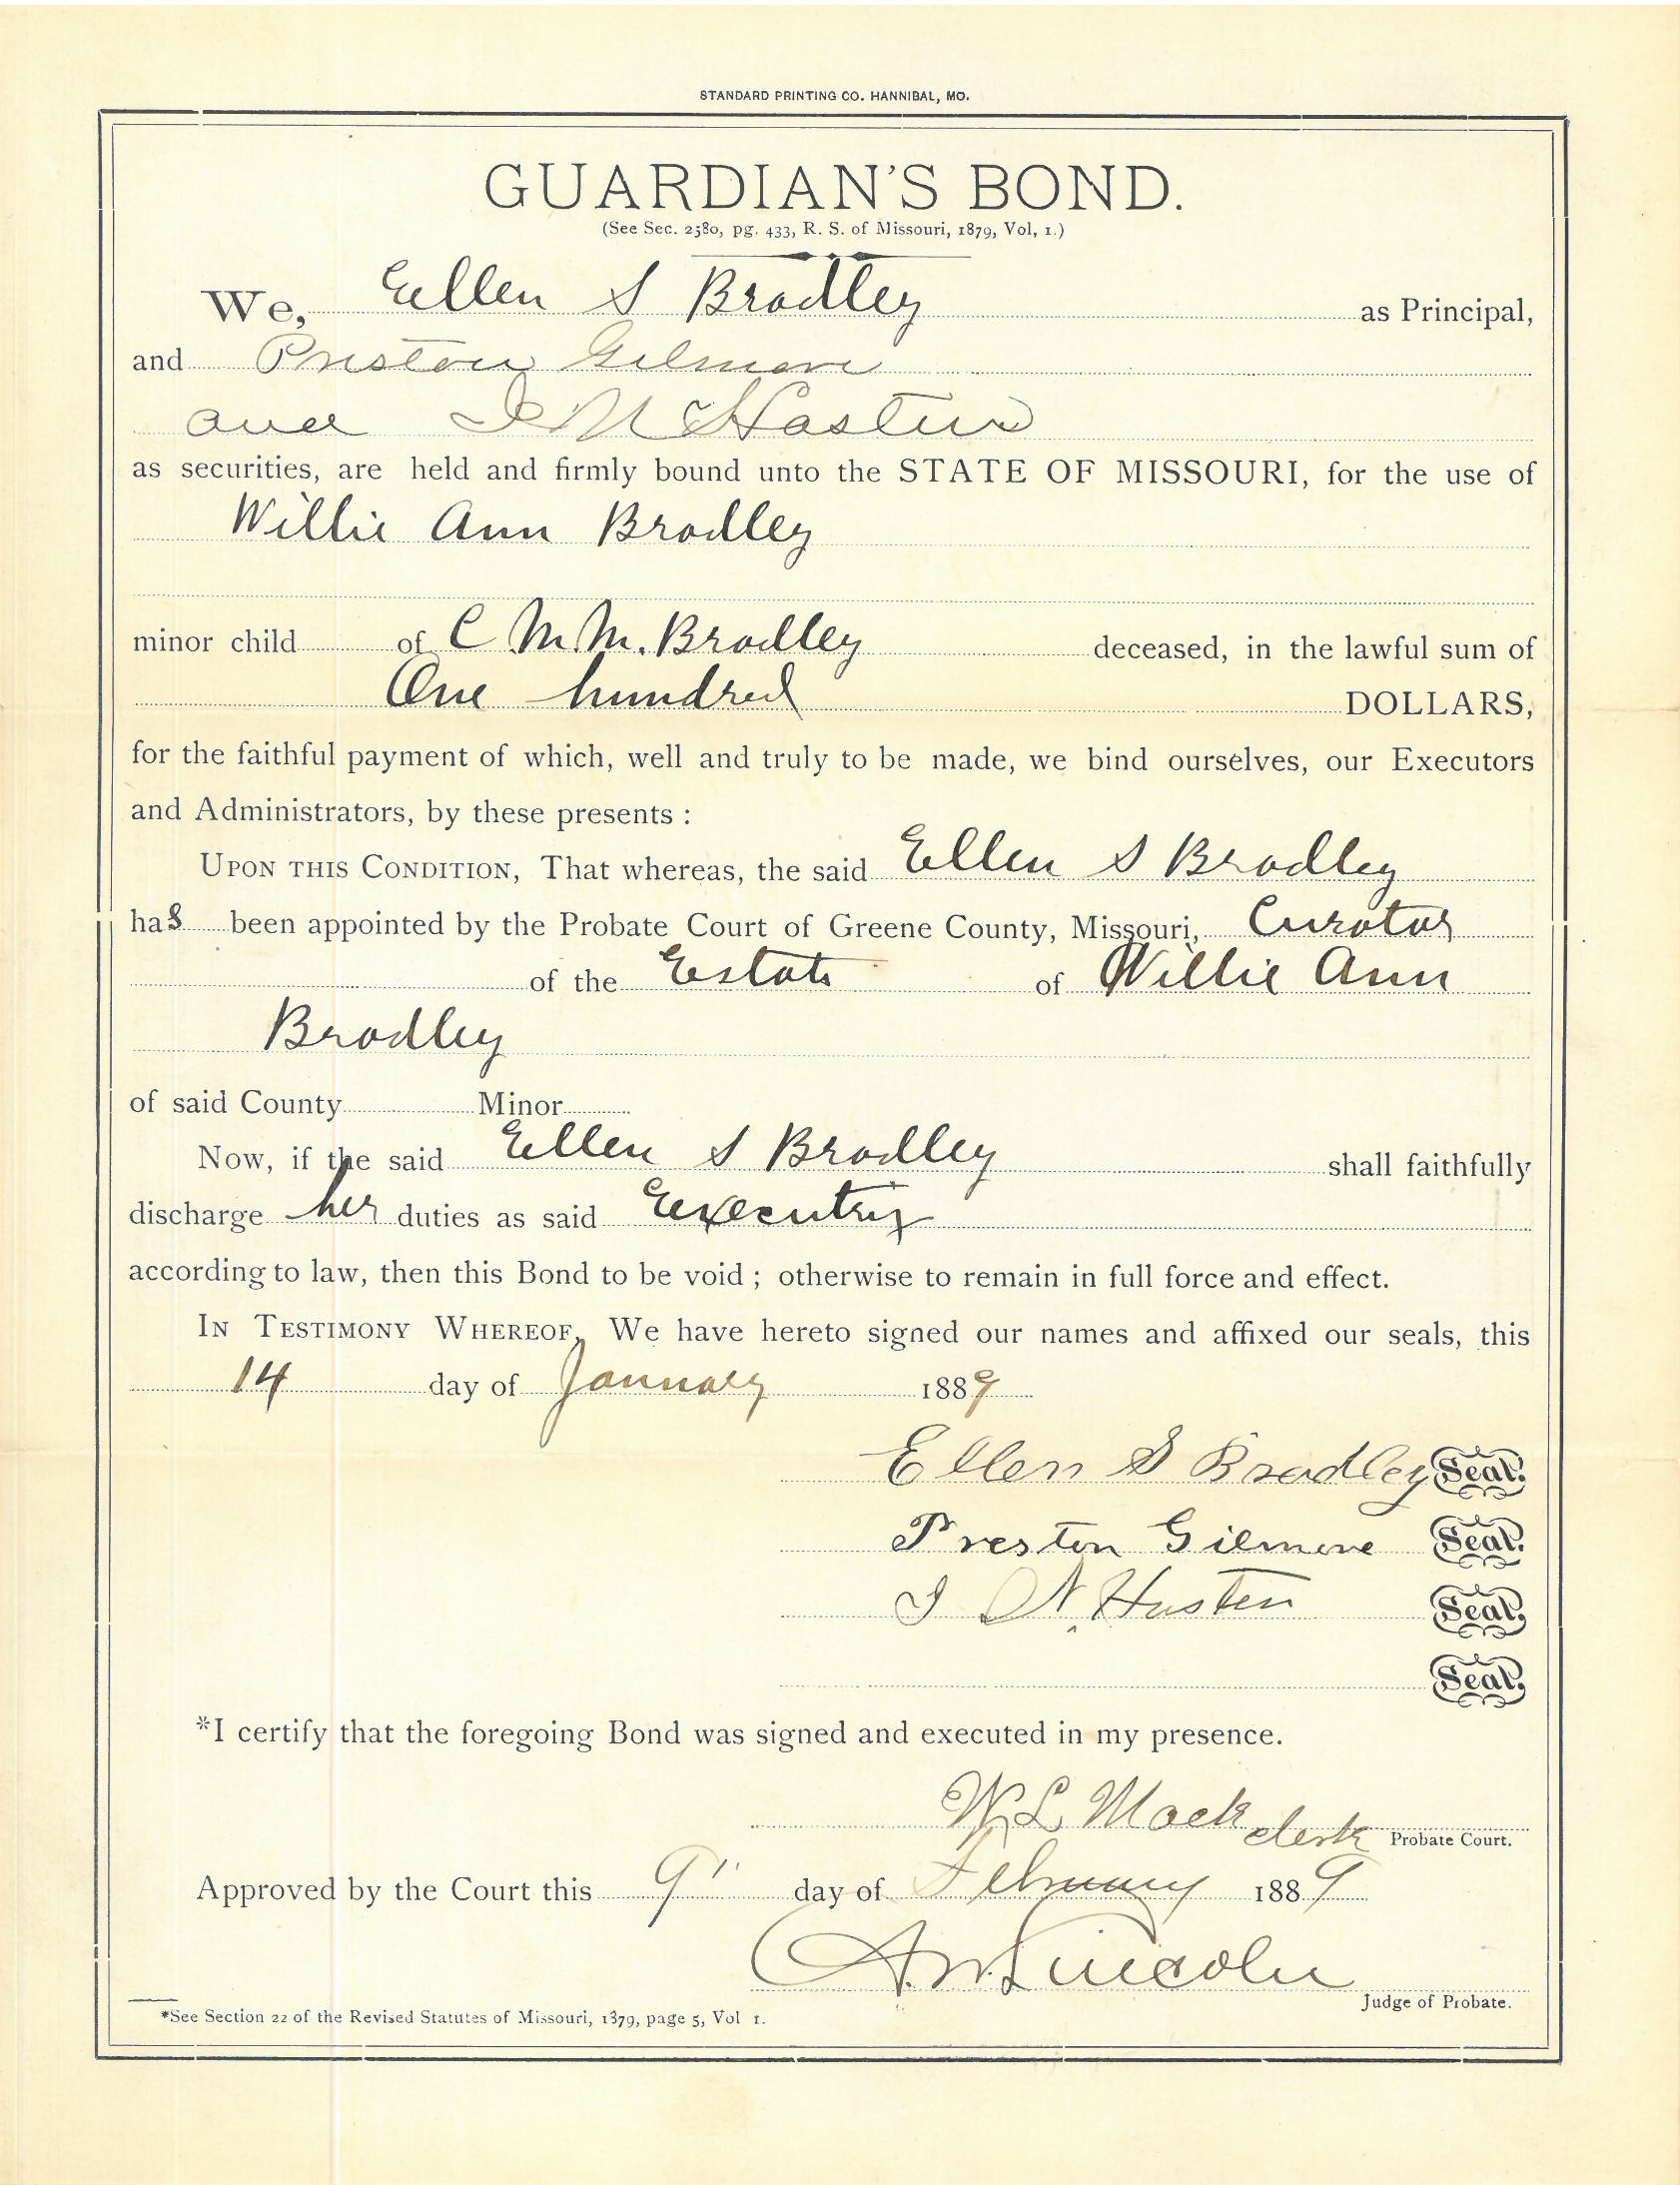 STANDARD PRINTING CO. HANNIBAL, MO.
GUARDIAN'S BOND.
(See Sec. 2580, pg. 433, R. S. of Missouri, 1879, Vol, 1.)
We, Ellen S Bradley as Principal,
and Preston Gilmore
and I N Hasten
as securities, are held and firmly bound unto the STATE OF MISSOURI, for the use of
Willie Ann Bradley
minor child of C M. M. Bradley deceased, in the lawful sum of
One hundred DOLLARS,
for the faithful payment of which, well and truly to be made, we bind ourselves, our Executors
and Administrators, by these presents :
UPON THIS CONDITION, That whereas, the said Ellen S Bradley
has been appointed by the Probate Court of Greene County, Missouri, Curator
of the Estate of Willie Ann
Bradley
of said County Minor
Now, if the said Ellen S Bradley shall faithfully
discharge her duties as said Executrix
according to law, then this Bond to be void ; otherwise to remain in full force and effect.
IN TESTIMONY WHEREOF, We have hereto signed our names and affixed our seals, this
14 day of January 1889
Ellen S Bradley Seal.
Preston Gilmore Seal.
I N. Hasten Seal.
Seal.
*I certify that the foregoing Bond was signed and executed in my presence.
W L Mack clerk Probate Court.
Approved by the Court this 9" day of February 1889
A. W. Lincoln
Judge of Probate.
*See Section 22 of the Revised Statutes of Missouri, 1879, page 5, Vol 1.